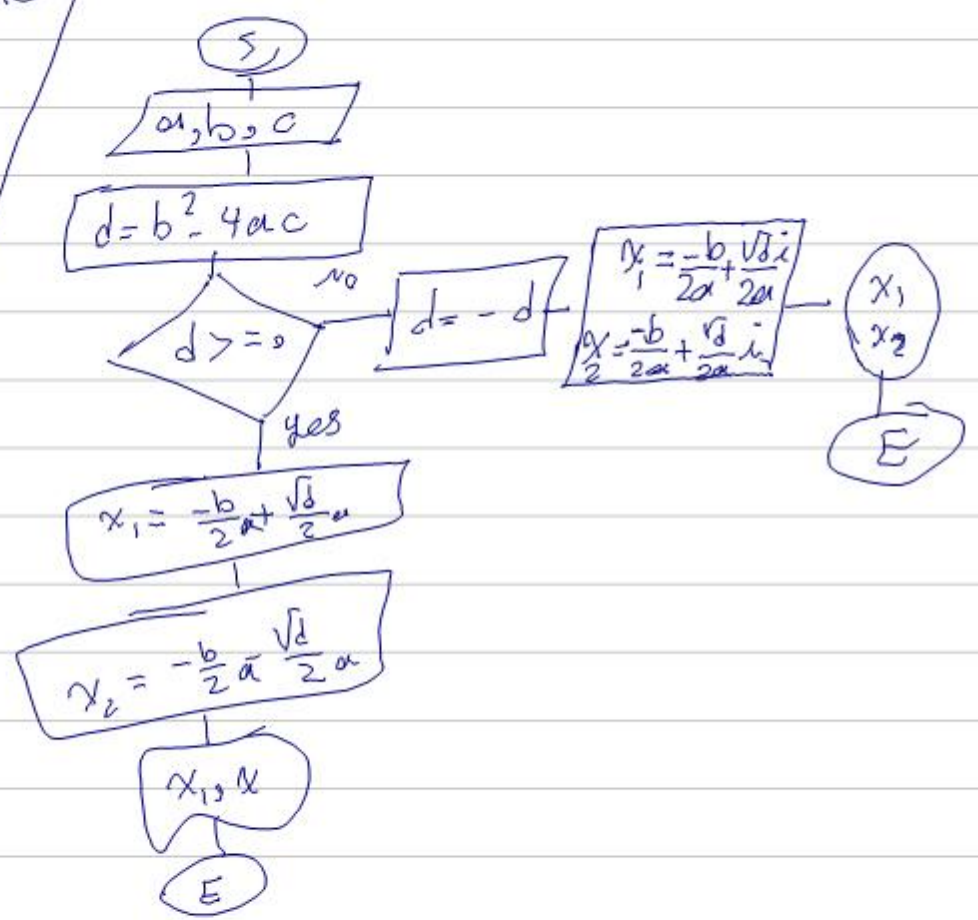 S
a, b, c
d = b² - 4ac
d >= 0
No
d = - d
x₁ = -b/2a + √d/2a i
x₂ = -b/2a + √d/2a i
x₁
x₂
E
yes
x₁ = -b/2 a + √d/2 a
x₂ = -b/2 a - √d/2 a
x₁, x
E